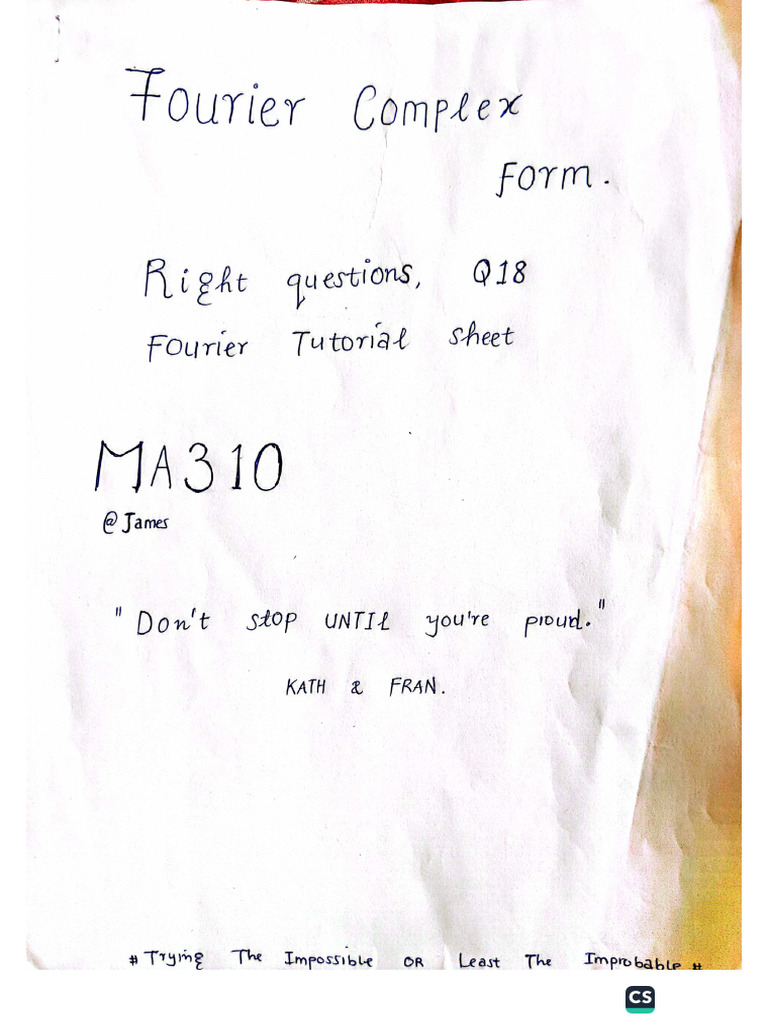 Fourier Complex
Form.
Right questions, Q18
Fourier Tutorial sheet
MA310
@James
"Don't stop UNTIL you're proud."
KATH & FRAN.
# Trying The Impossible OR Least The Improbable #
CS